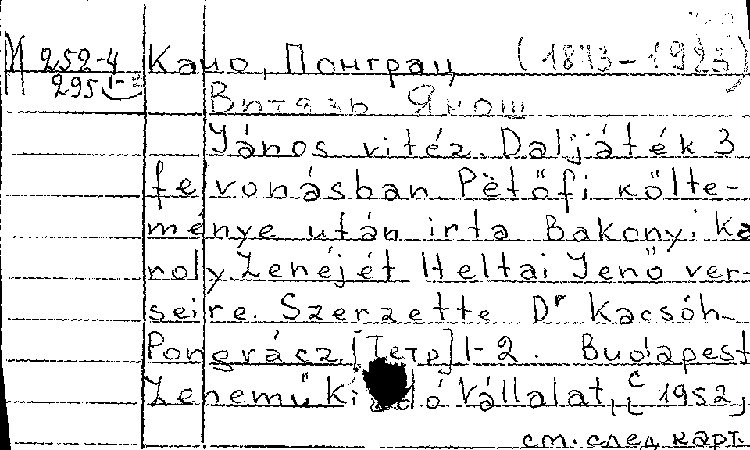 М 252-4 Качо, Понграц (1873-1923)
295 1-2
Витязь Янош
János vitéz. Daljáték 3
felvonásban Petőfi költe-
ménye után irta Bakonyi Ka
roly. Zenéjét Heltai Jenő ver-
seire. Szerzette Dr Kacsóh
Pongrácz. [Тетр] 1-2. Budapest
Zeneműki dó Vállalat, c 1952,
см. след. карт.